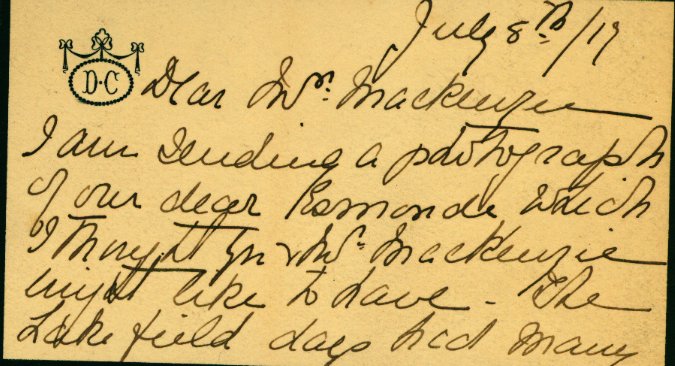 July 8th/19
D·C
Dear Mr. Mackenzie
I am sending a photograph
of our dear Esmonde which
I thought you & Mrs. Mackenzie
might like to have - The
Lakefield days had many